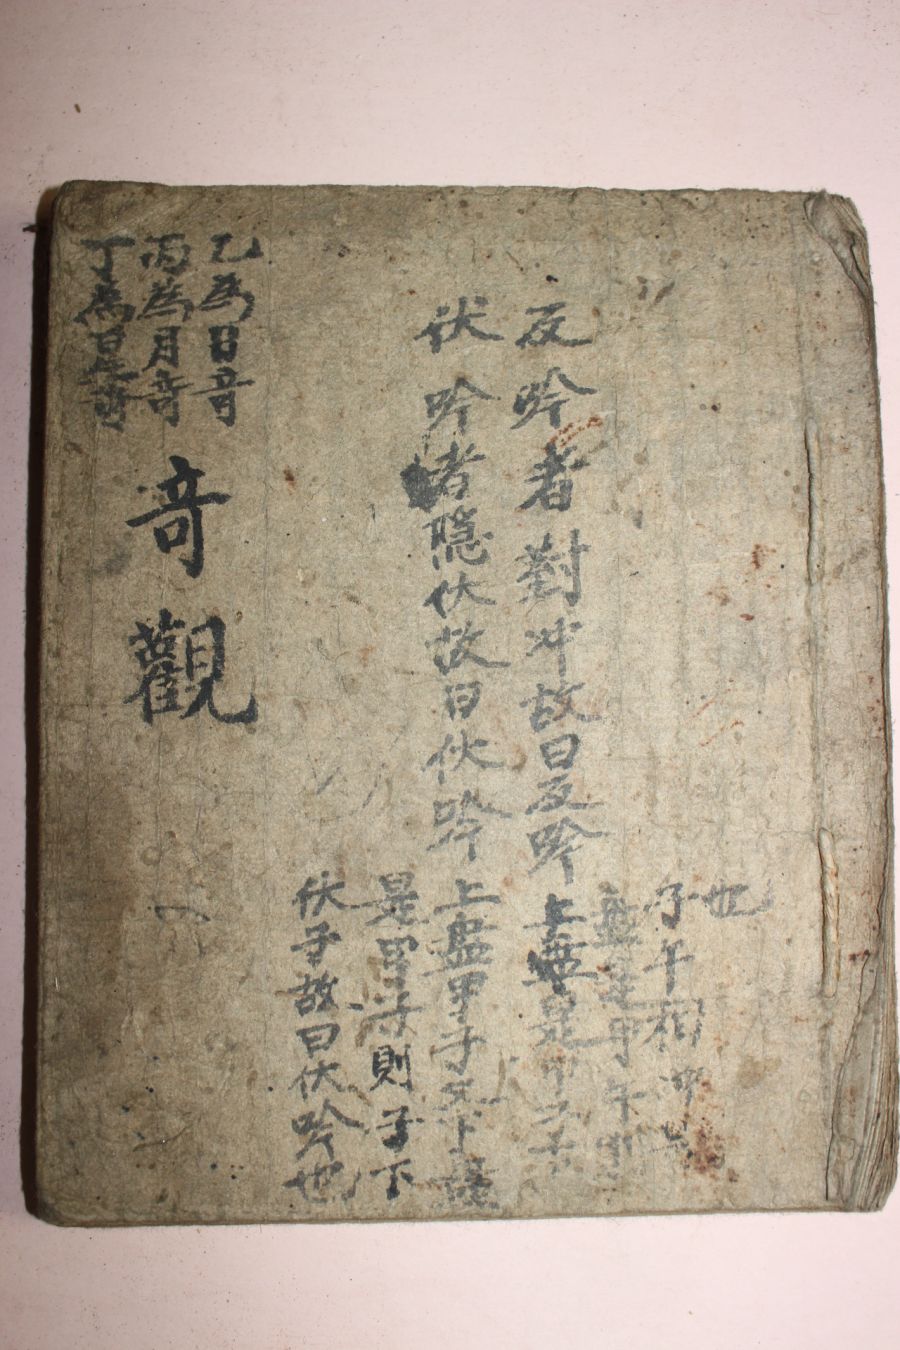 也
子午相冲
盤是甲午則
反吟者對冲故曰反吟上盤是甲子下
伏吟者隱伏故曰伏吟上盤甲子天下盤
是甲子則子下
伏子故曰伏吟也
乙為日奇
丙為月奇
丁為星奇
奇觀